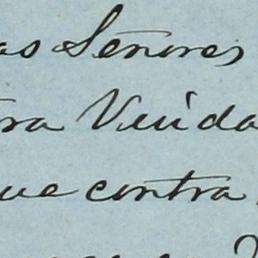 as Señores
ra Viuda
ue contra